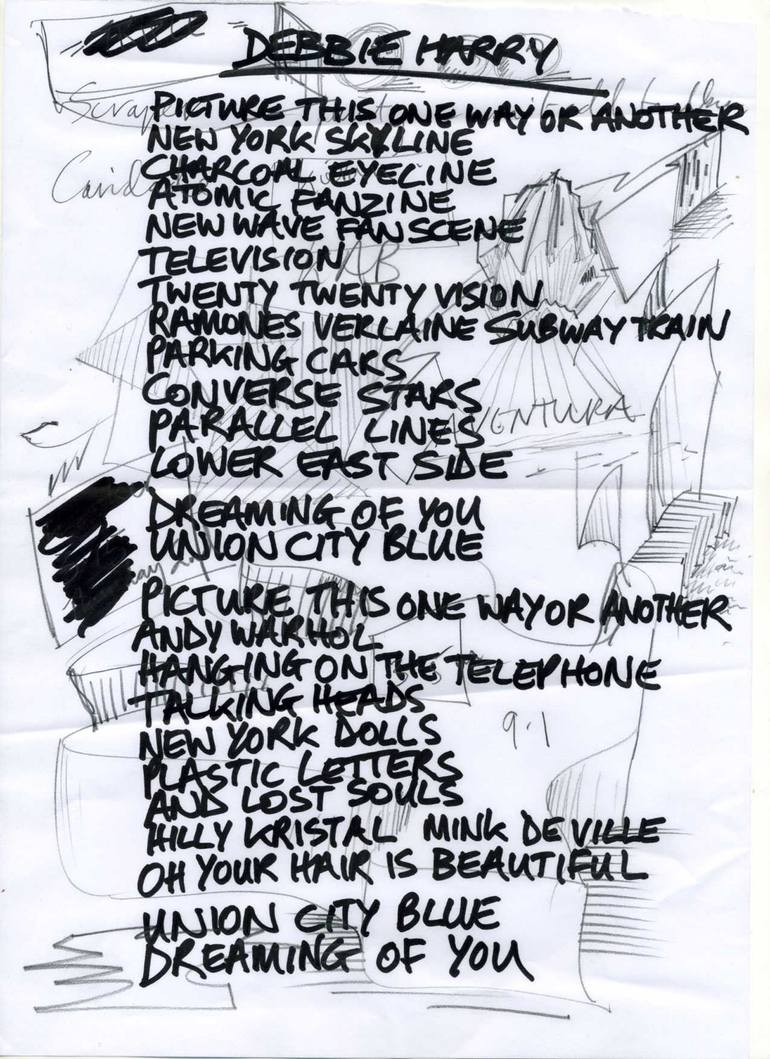 DEBBIE HARRY
PICTURE THIS ONE WAY OR ANOTHER
NEW YORK SKYLINE
CHARCOAL EYELINE
ATOMIC FANZINE
NEW WAVE FAN SCENE
TELEVISION
TWENTY TWENTY VISION
RAMONES VERLAINE SUBWAY TRAIN
PARKING CARS
CONVERSE STARS
PARALLEL LINES
VENTURA
LOWER EAST SIDE
DREAMING OF YOU
UNION CITY BLUE
PICTURE THIS ONE WAY OR ANOTHER
ANDY WARHOL
HANGING ON THE TELEPHONE
TALKING HEADS
NEW YORK DOLLS
9.1
PLASTIC LETTERS
AND LOST SOULS
HILLY KRISTAL MINK DE VILLE
OH YOUR HAIR IS BEAUTIFUL
UNION CITY BLUE
DREAMING OF YOU